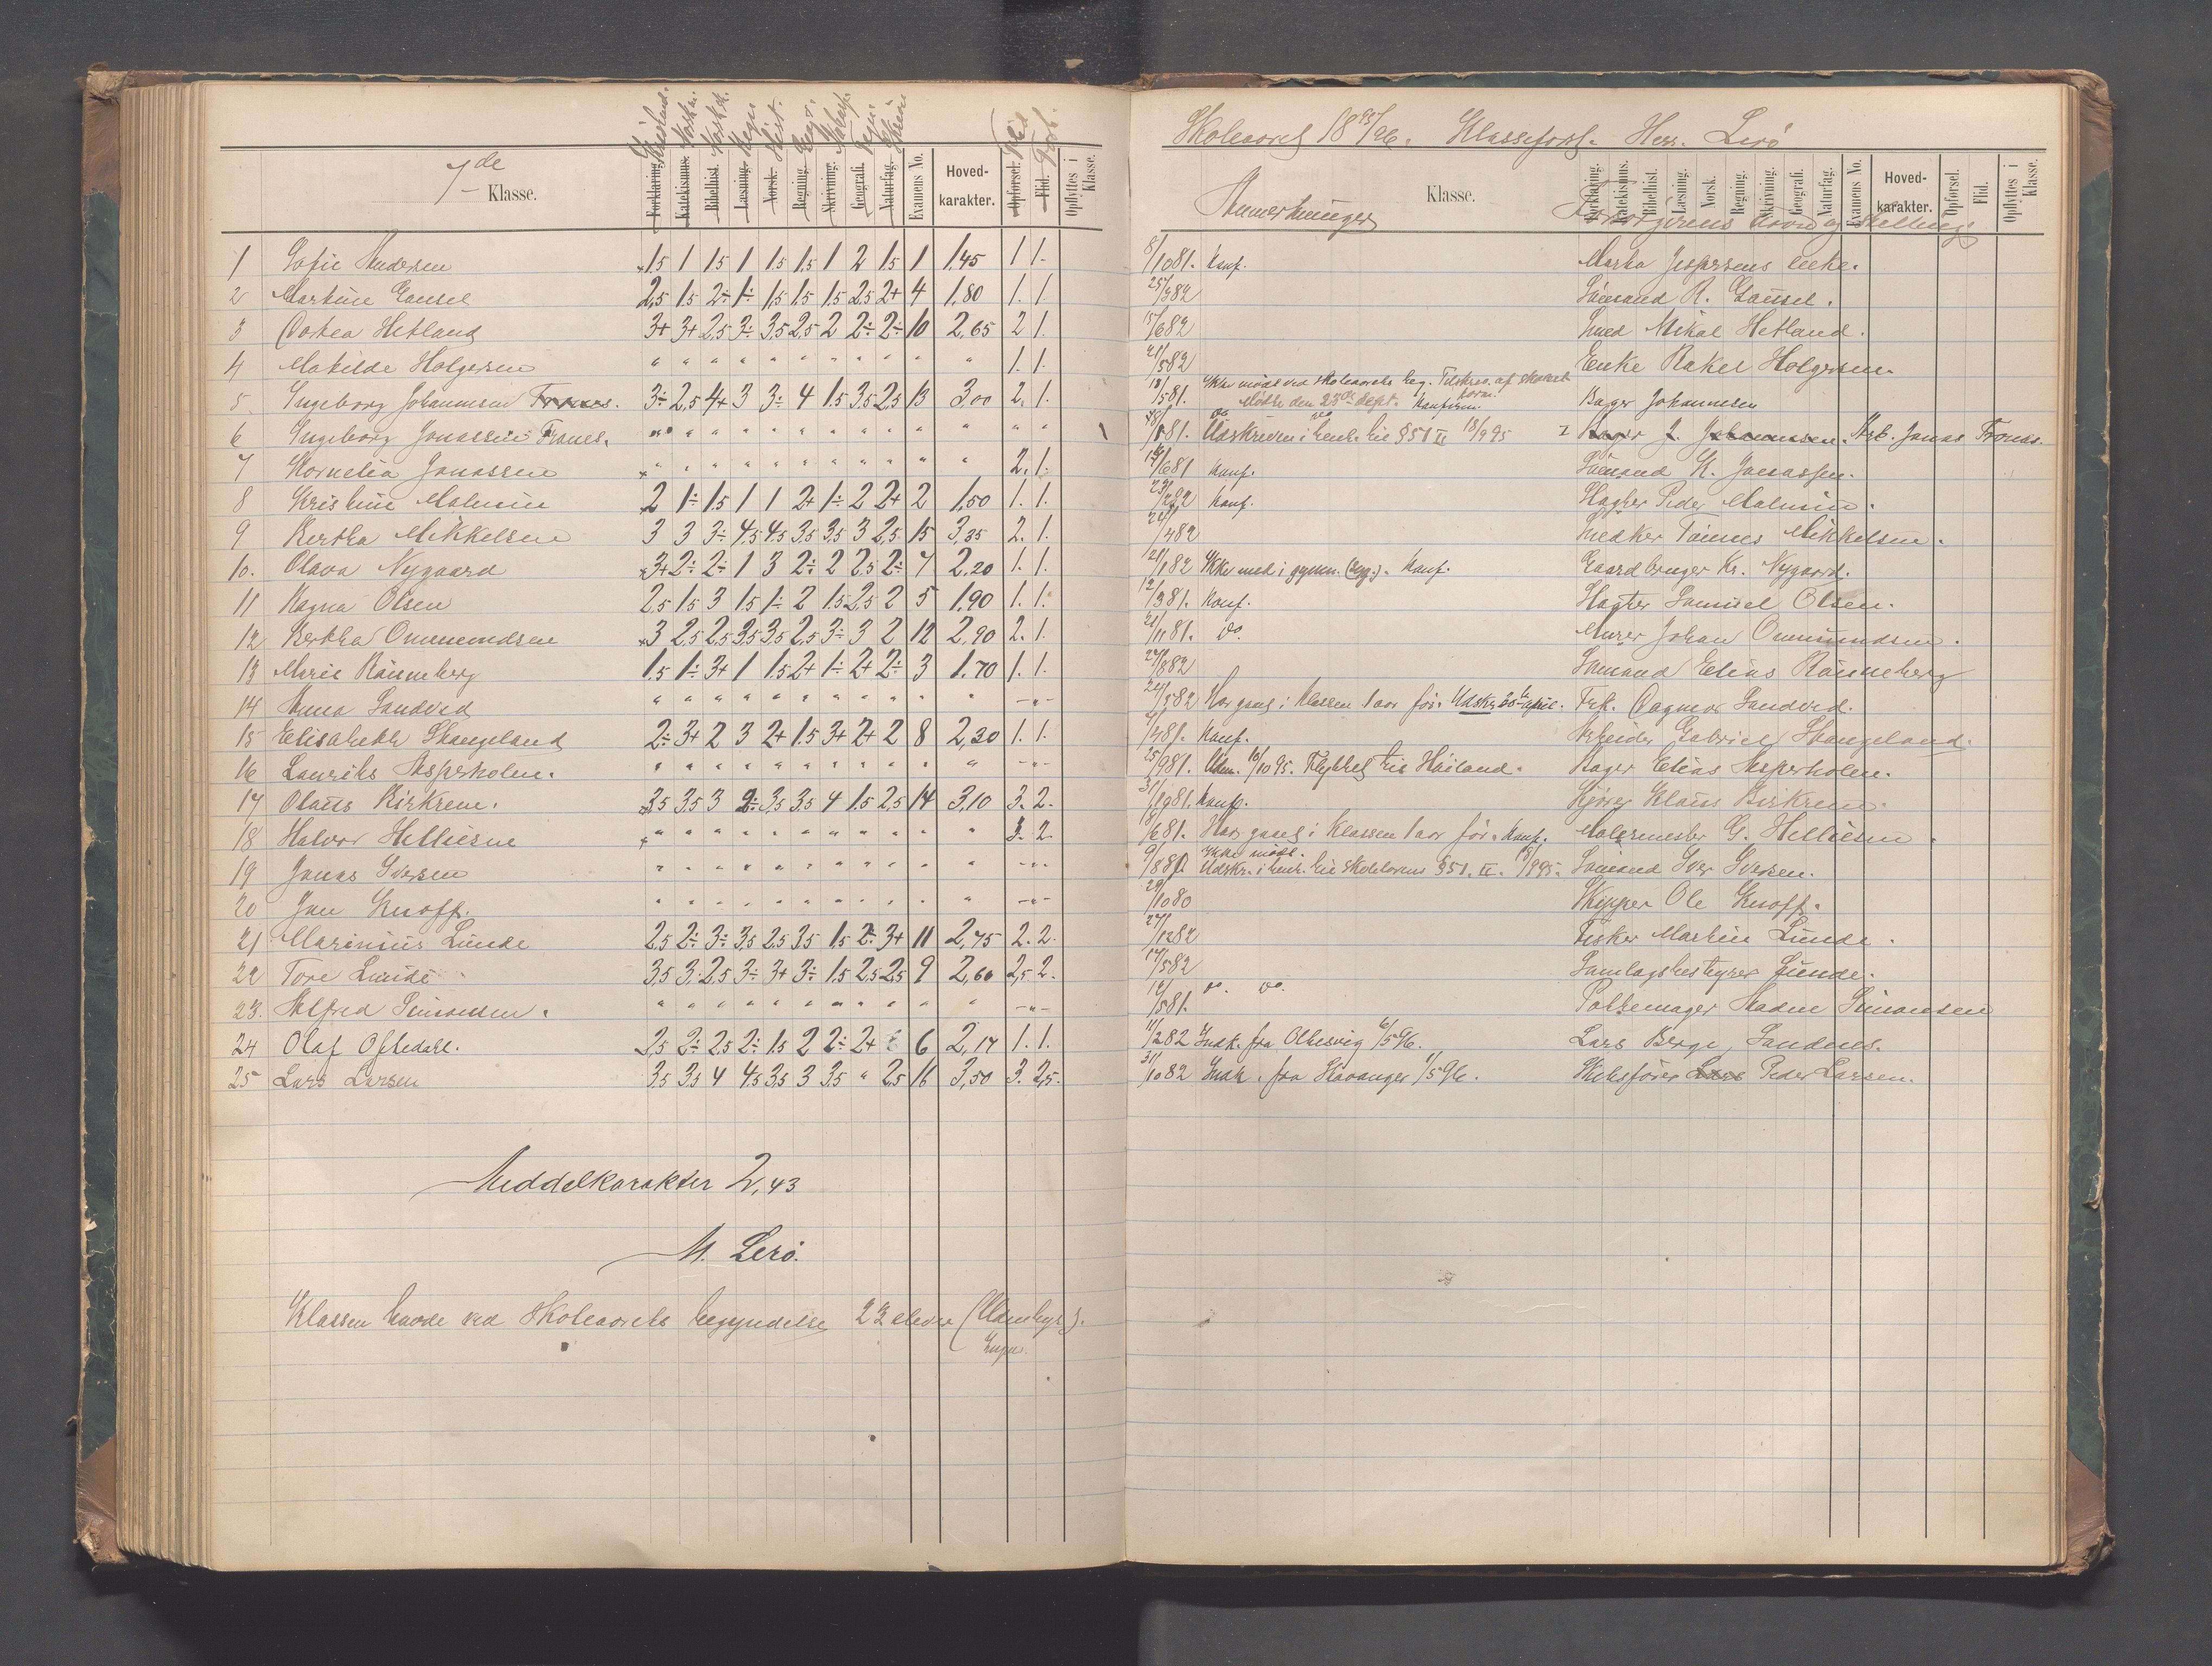 7de Klasse.
Forklaring. Katekismus. Bibelhist. Læsning. Norsk. Regning. Skrivning. Geografi. Naturfag. Examens No. Hoved-karakter. Opførsel. Flid. Opflyttes i Klasse.
1 Sofie Andersen 1.5 1 1.5 1 1.5 1.5 1 2 1.5 1 1,45 1 1.
2 Martine Gausel 2.5 1.5 2÷ 1÷ 1.5 1.5 1.5 2.5 2+ 4 1,80 1. 1.
3 Dortea Hetland 3+ 3+ 2.5 3÷ 3.5 2.5 2 2÷ 2÷ 10 2,65 2 1.
4 Matilde Holgersen " " " " " " " " " " " 1. 1.
5. Ingeborg Johannesen 3÷ 2.5 4+ 3 3÷ 4 1.5 3.5 2.5 13 3,00 2. 1.
6 Ingeborg Jonassen Trones. " " " " " " " " " " " " "
7 Kornelia Jonassen " " " " " " " " " " " 2. 1.
8 Kristine Malmin 2 1÷ 1.5 1 1 2+ 1÷ 2 2+ 2 1,50 1. 1.
9 Bertha Mikkelsen 3 3 3÷ 4.5 4.5 3.5 3.5 3 2.5 15 3,35 2. 1.
10. Olava Nygaard 3+ 2÷ 2÷ 1 3 2÷ 2 2.5 2÷ 7 2,20 1. 1.
11 Ragna Olsen 2.5 1.5 3 1.5 1÷ 2 1.5 2.5 2 5 1,90 1. 1.
12 Bertha Ommundsen 3 2.5 2.5 3.5 3.5 2.5 3÷ 3 2 12 2,90 2. 1.
13 Marie Rönneberg 1.5 1÷ 3+ 1 1.5 2+ 1÷ 2+ 2÷ 3 1,70 1. 1.
14 Anna Sandved " " " " " " " " " " -"-
15 Elisabeth Skangeland 2÷ 3+ 2 3 2+ 1.5 3+ 2+ 2 8 2,30 1. 1.
16 Laurits Asperholen. " " " " " " " " " " " -"-
17 Olaus Birkrem. 3.5 3.5 3 2÷ 3.5 3.5 4 1.5 2.5 14 3,10 3. 2.
18 Halvor Helliesen " " " " " " " " " " " 3. 2.
19 Jonas Iversen " " " " " " " " " " " -"-
20 Jan Knoff. " " " " " " " " " " " -"-
21 Marinius Lunde 2.5 2÷ 3÷ 3.5 2.5 3.5 1.5 2÷ 3+ 11 2,75 2. 2.
22 Tore Lunde 3.5 3÷ 2.5 3÷ 3+ 3÷ 1.5 2.5 2.5 9 2,60 2,5 2.
23. Alfred Simonsen. " " " " " " " " " " " -"-
24 Olaf Oftedahl. 2.5 2÷ 2.5 2÷ 1.5 2 2÷ 2+ 6 2,17 1. 1.
25 Lars Larsen 3.5 3.5 4 4.5 3.5 3 3.5 " 2.5 16 3,50 3. 2,5.
Middelkarakter 2,43
M. Lerö.
Klassen havde ved Skoleaarets begyndelse 23 elever
Skoleaaret 1895/96. Klasseforst. Herr. Lerö
Anmerkninger Klasse.
Forsörgerens Navn og Stilling
Forklaring. Katekismus. Bibelhist. Læsning. Norsk. Regning. Skrivning. Geografi. Naturfag. Examens No. Hoved-karakter. Opførsel. Flid. Opflyttes i Klasse.
8/10 81. Konf. Marta Jespersens enke.
25/3 82 Sömand R. Gausel.
15/6 82 Smed Mikal Hetland.
21/5 82 Enke Rakel Holgersen.
18/5 81. Ikke mödt ved skoleaarets beg. Tilskrev. af skolest.
Mödte den 23de Sept. Konfirm. Bager Johannesen
Udskreven i henh. til § 51 II 18/9 95 Bager J. Johannessen. Arb. Jonas Trones.
/6 81 Konf. Sömand K. Jonassen.
23/2 82 Konf. Slagter Peder Malmin.
24/4 82 Snedker Tönnes Mikkelsen.
21/1 82 Ikke med i gymn. (syg.). Konf. Gaardbruger Kr. Nygaard.
12/3 81. Konf. Slagter Samuel Olsen.
21/11 81. do. Murer Johan Ommundsen.
27/8 82 Sömand Elias Rönneberg
24/5 82 Har gaaet i klassen 1 aar för. Udskr. 30te april. Frk. Dagmar Sandved.
7/4 81. Konf. Arbeider Gabriel Skangeland.
25/9 81. Udm. 10/10 95. Flyttet til Höiland. Bager Elias Asperholen.
31/10 81. Konf. Kjörer Klaus Birkrem.
18/6 81. Har gaaet i Klassen 1 aar för. Konf. Malermester G. Helliesen.
9/8 81 Ikke mödt.
Udskr. i henh. til Skoleloven § 51. II. 18/9 95. Sömand Iver Iversen.
29/10 80 Skipper Ole Knoff.
27/12 82 Fisker Martin Lunde.
17/5 82 Samlagsbestyrer Lunde.
12/5 81. do. do. Pölsemager Simonsen
11/2 82 Indk. fra Oltesvig 6/5 96. Lars Berge, Sandnes.
31/10 82 Indk. fra Stavanger 1/5 96. Skibsförer Peder Larsen.